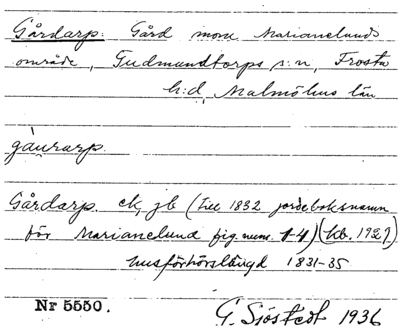 Gårdarp. Gård inom Marianelunds
område, Gudmundtorps s:n, Frosta
h:d, Malmöhus län
gàurarp.
Gårdarp. ek, jb (till 1832 jordeboksnamn
för Marianelund fig. num. 1-4) (kb. 1927)
husförhörslängd 1831-35
Nr 5550.
G. Sjöstedt 1936